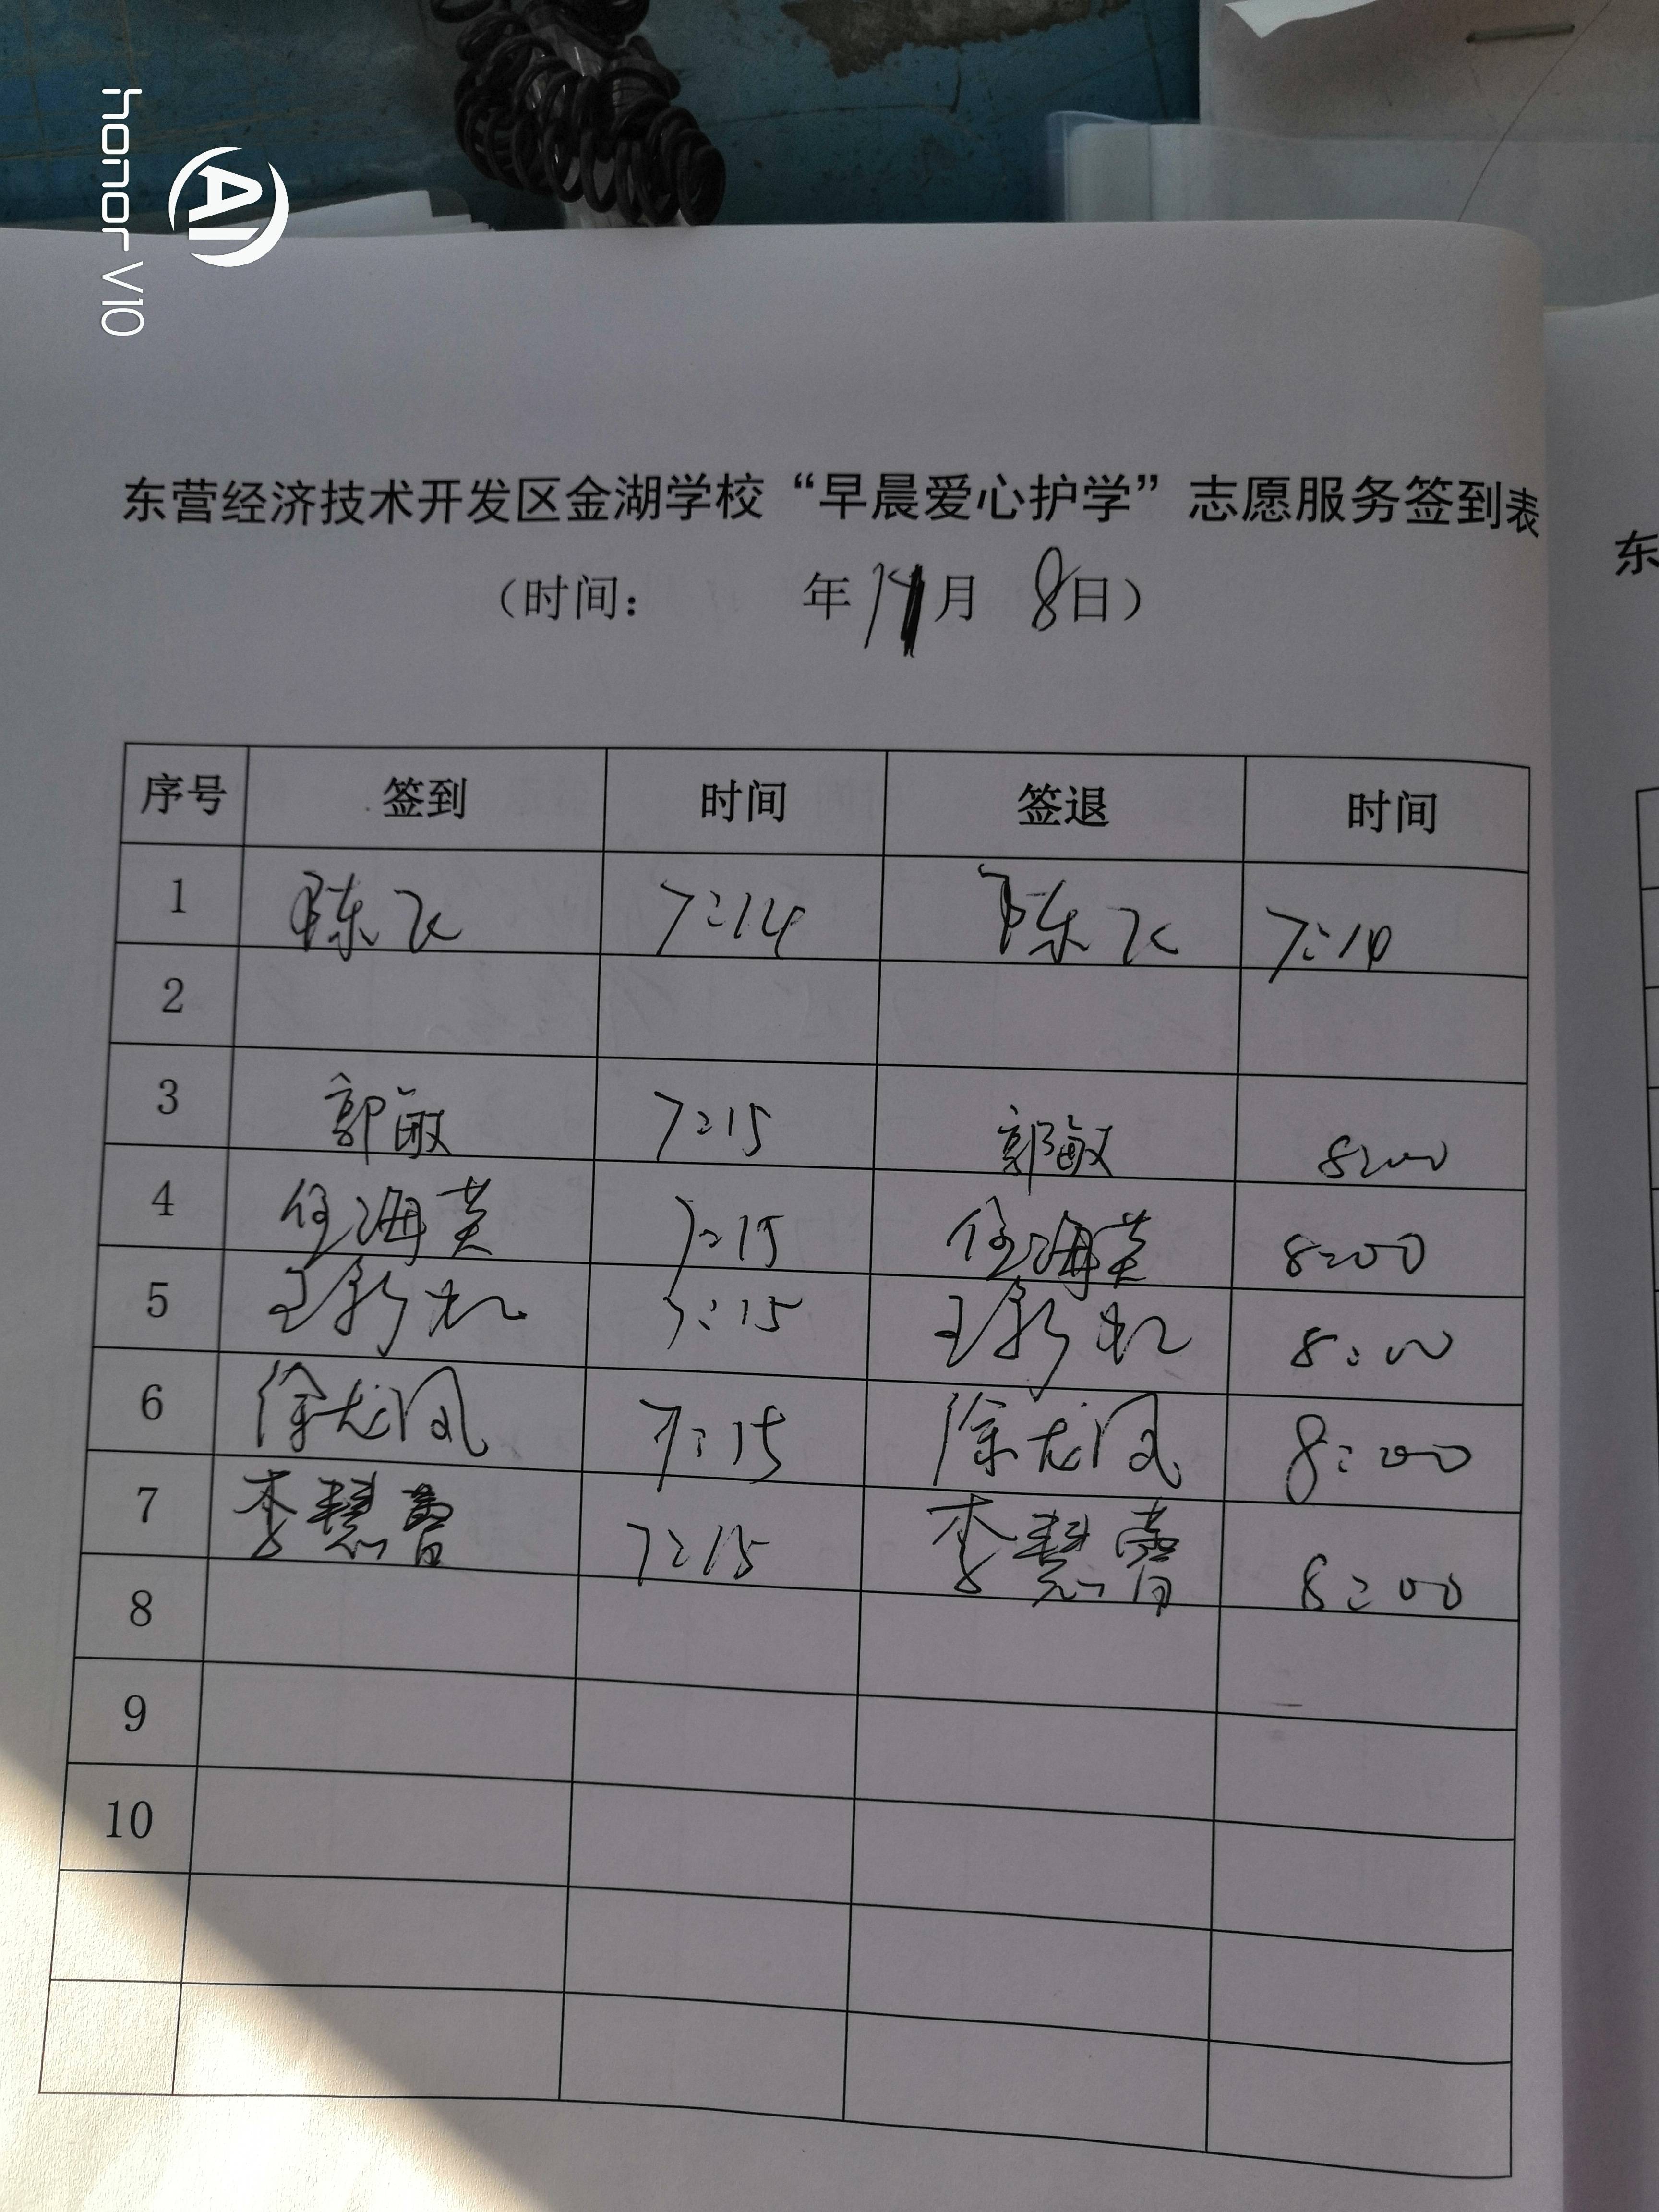 honor V10
AI
东营经济技术开发区金湖学校“早晨爱心护学”志愿服务签到表
（时间： 年11月 8日）
序号 签到 时间 签退 时间
1 陈飞 7:14 陈飞 7:10
2
3 郭敏 7:15 郭敏 8:00
4 任海英 7:15 任海英 8:00
5 7:15 8:00
6 徐龙凤 7:15 徐龙凤 8:00
7 李慧 7:15 李慧 8:00
8
9
10
东